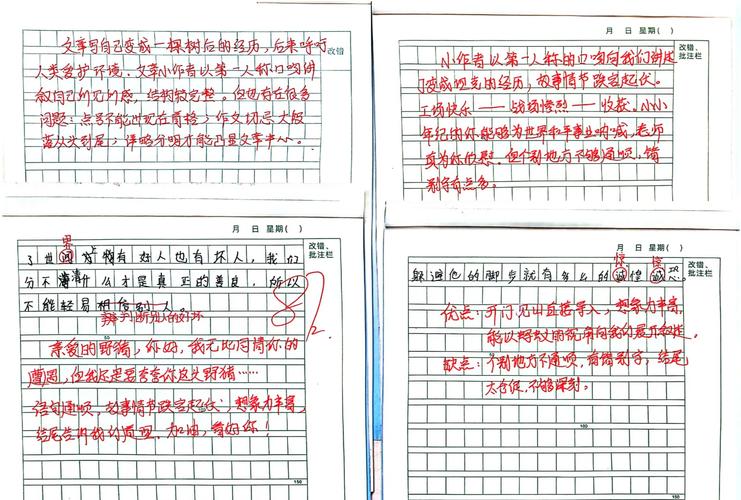 文章写自己变成一棵树后的经历，后来呼吁
人类爱护环境。文章小作者以第一人称口吻讲
叙自己的见闻感，结构较完整。但也存在很多
问题：点号不能出现在首格；作文切忌大段
落从头到尾；详略分明才能凸显文章中心。
改错、
批注栏
月 日 星期( )
改错、
批注栏
小作者以第一人称的口吻向我们讲述
了变成坦克的经历，故事情节跌宕起伏。
工场快乐——战场惨烈——收获。小小
年纪的你能够为世界和平事业呐喊，老师
真为你欣慰。但个别地方不够通顺，错
别字有点多。
月 日 星期( )
改错、
批注栏
界
了世间 有好人也有坏人，我们
分不清什么才是真正的善良，所以
不能轻易相信别人。
辨判断别人的好坏
82
亲爱的野猪，你好，我无比同情你的
遭遇，但我还是要夸夸你这头野猪……
语句通顺，故事情节跌宕起伏，想象力丰富，
结尾告诉我们道理。加油，看好你！
150
月 日 星期( )
改错、
批注栏
惊 惶
躲避他的脚步就有多么的诚惶诚恐。
优点：开门见山直接导入，想象力丰富，
能以蚂蚁的视角向我们展开叙述。
缺点：个别地方不通顺，有错别字；结尾
太仓促，不够深刻。
100
150